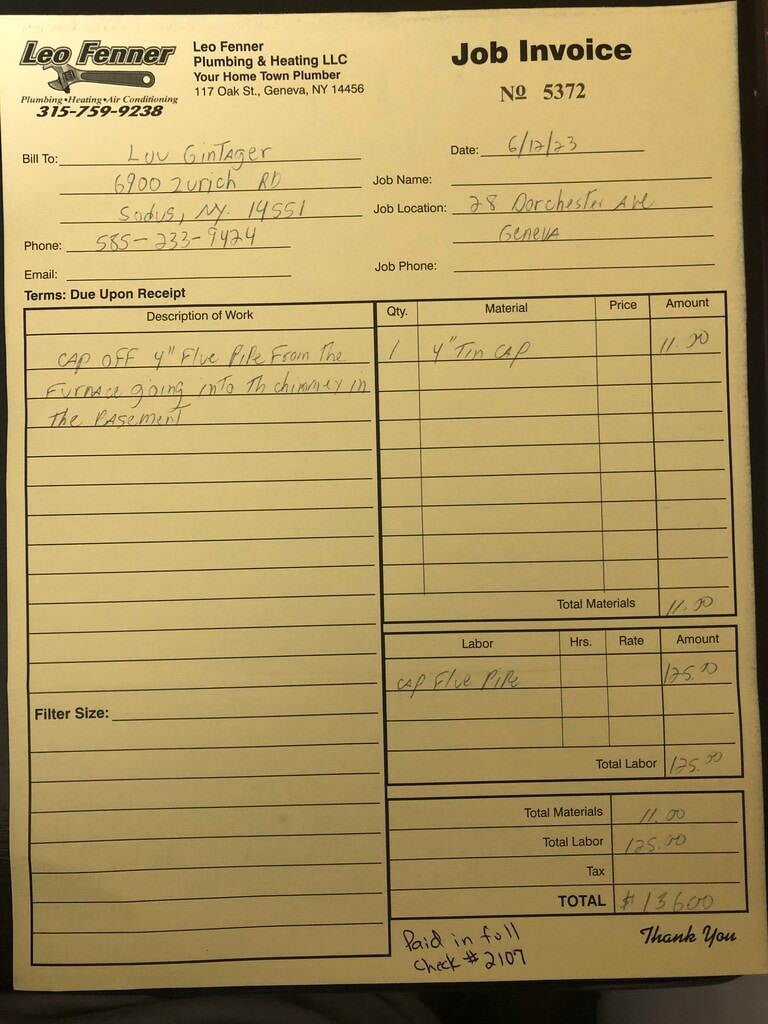 Leo Fenner
Plumbing • Heating • Air Conditioning
315-759-9238
Leo Fenner
Plumbing & Heating LLC
Your Home Town Plumber
117 Oak St., Geneva, NY 14456
Job Invoice
No 5372
Bill To: Luu GinTAger
6900 Zurich RD
Sodus, NY. 14551
Phone: 585-233-9424
Email:
Date: 6/12/23
Job Name:
Job Location: 28 Dorchester Ave
Geneva
Job Phone:
Terms: Due Upon Receipt
Description of Work
CAP OFF 4" Flue PiPe From The
Furnace going into Th chimney in
The Basement
Filter Size:
Qty. Material Price Amount
1 4" Tin CAP 11.00
Total Materials 11.00
Labor Hrs. Rate Amount
CAP Flue PiPe 125.00
Total Labor 125.00
Total Materials 11.00
Total Labor 125.00
Tax
TOTAL $13600
Paid in full
check #2107
Thank You